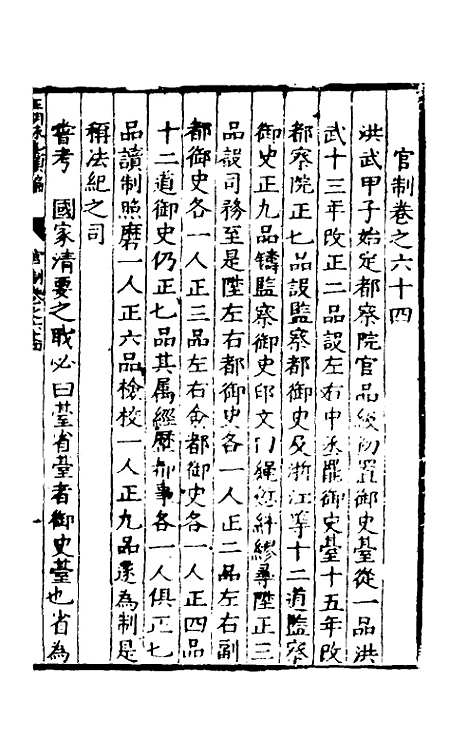 官制卷之六十四
洪武甲子始定都察院官品級初置御史臺從一品洪
武十三年改正二品設左右中丞罷御史臺十五年改
都察院正七品設監察都御史及浙江等十二道監察
御史正九品鑄監察御史印文曰繩愆糾繆尋陞正三
品設司務至是陞左右都御史各一人正二品左右副
都御史各一人正三品左右僉都御史各一人正四品
十二道御史仍正七品其属經歷都事各一人俱正七
品讀制照磨一人正六品檢校一人正九品遂為制是
稱法紀之司
嘗考 國家清要之職必曰臺省臺者御史臺也省為
官制卷之六十四
一